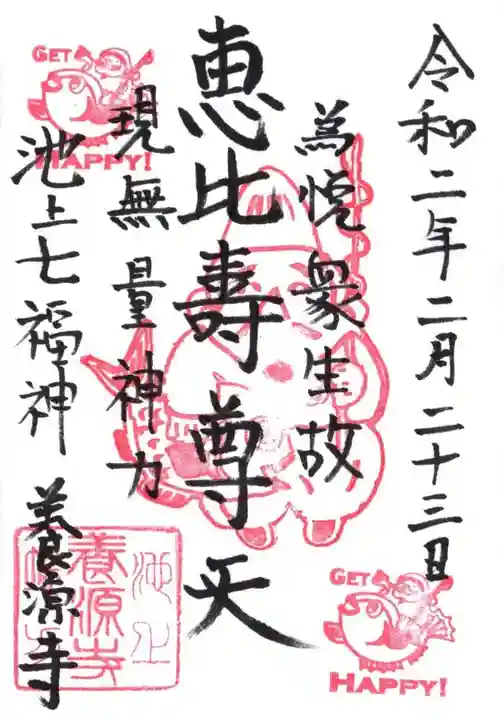 令和二年二月二十三日
為悦衆生故
恵比壽尊天
現無量神力
池上七福神
養源寺
GET
HAPPY!
GET
HAPPY!
池上
養源寺